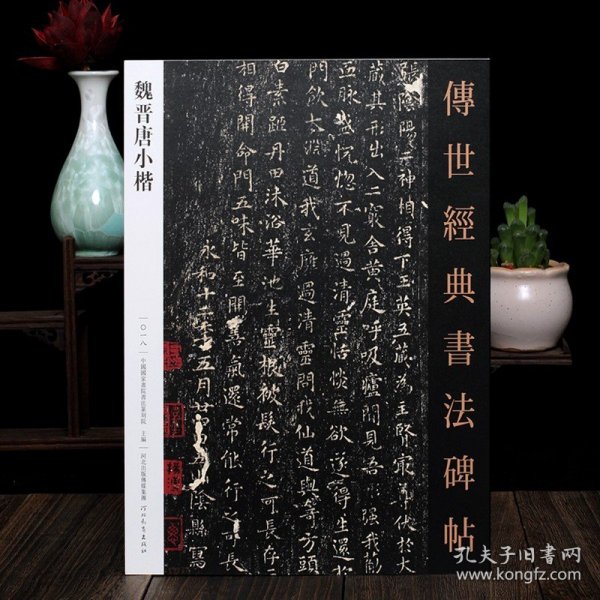 傳世經典書法碑帖
魏晋唐小楷
一〇一八
中國國家畫院書法篆刻院 主編
河北出版傳媒集團
河北教育出版社
陰陽
神相得下玉英五藏為主腎寂
藏其形出入二竅舍黄庭呼吸廬間見吾形强我筋
血脉盛恍惚不見過清靈恬惔無欲遂得生還於
門飲大淵道我玄廱過清靈問我仙道與奇方頭
白素距丹田沐浴華池生靈根被髮行之可長存
相得開命門五味皆至開善氣還常能行之可長
永和十二年五月廿
山陰縣寫
孔夫子旧书网
www.kongfz.com